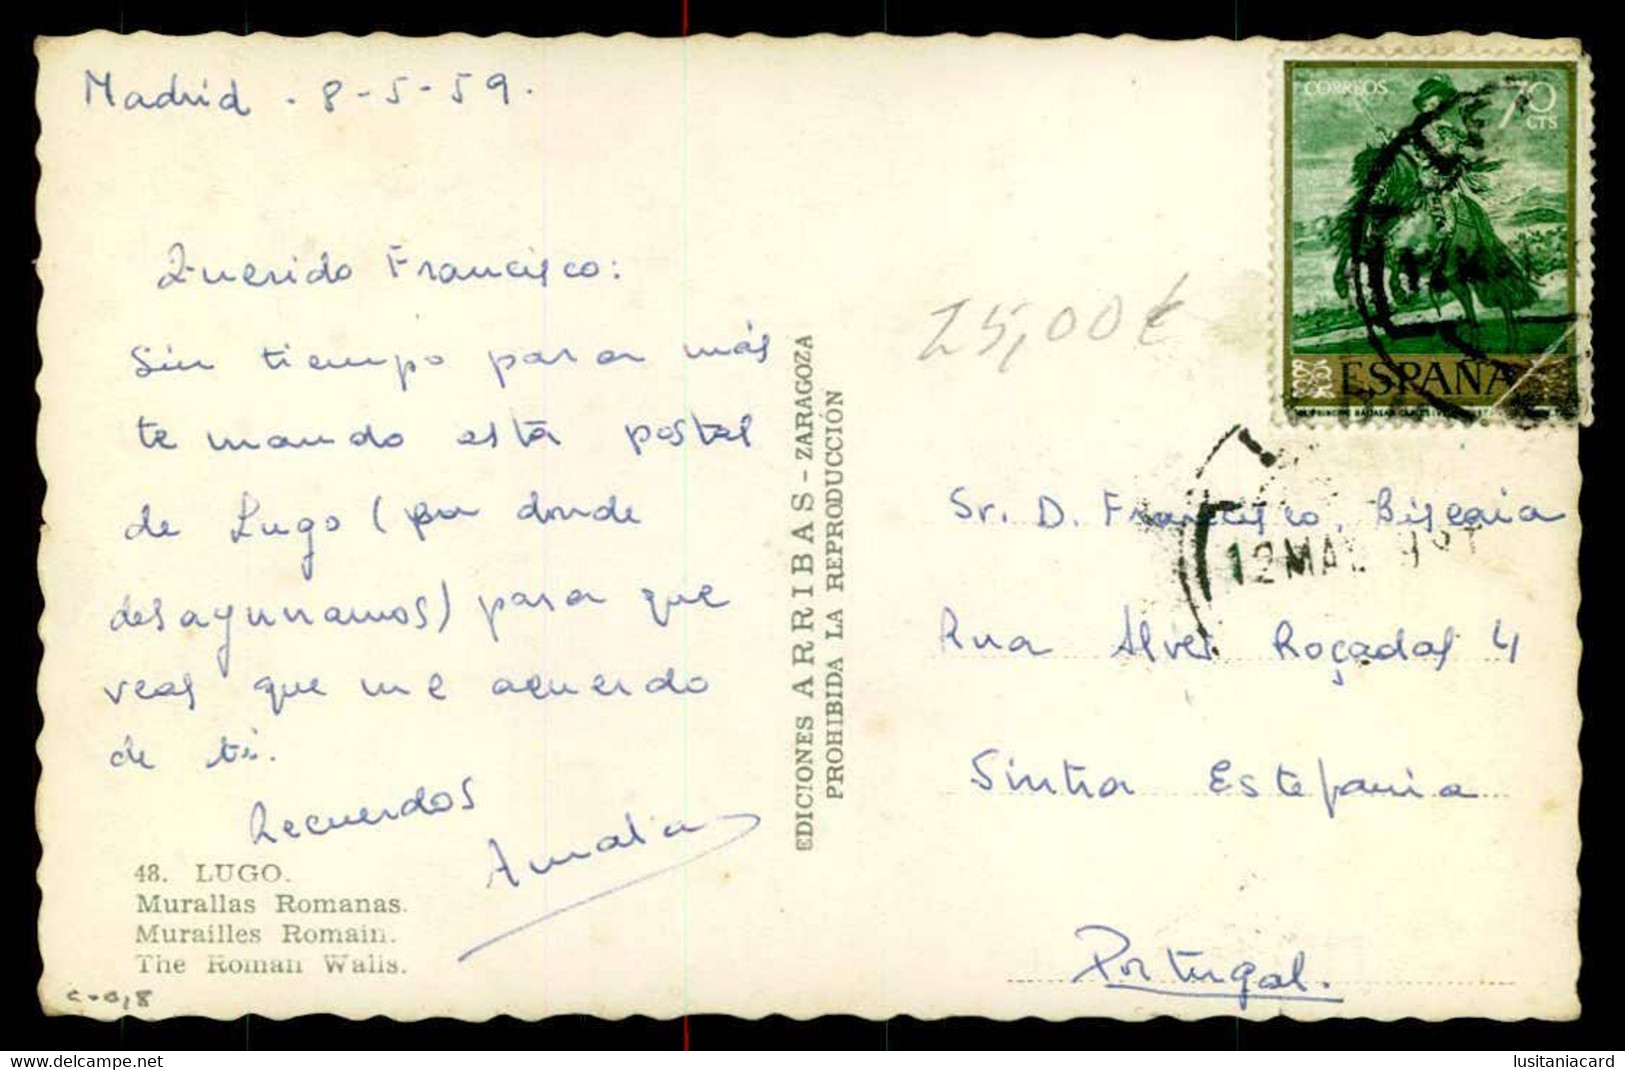 Madrid - 8-5-59.
Querido Francisco:
Sin tiempo para más
te mando esta postal
de Lugo (por donde
desayunamos) para que
veas que me acuerdo
de ti.
Recuerdos
Amalia
48. LUGO.
Murallas Romanas.
Murailles Romain.
The Roman Walls.
c-0,8
EDICIONES ARRIBAS - ZARAGOZA
PROHIBIDA LA REPRODUCCIÓN
25,00€
CORREOS
70
CTS
ESPAÑA
12 MAI
Sr. D. Francisco Biscaia
Rua Alves Roçadas 4
Sintra Estefania
Portugal.
www.delcampe.net
lusitaniacard